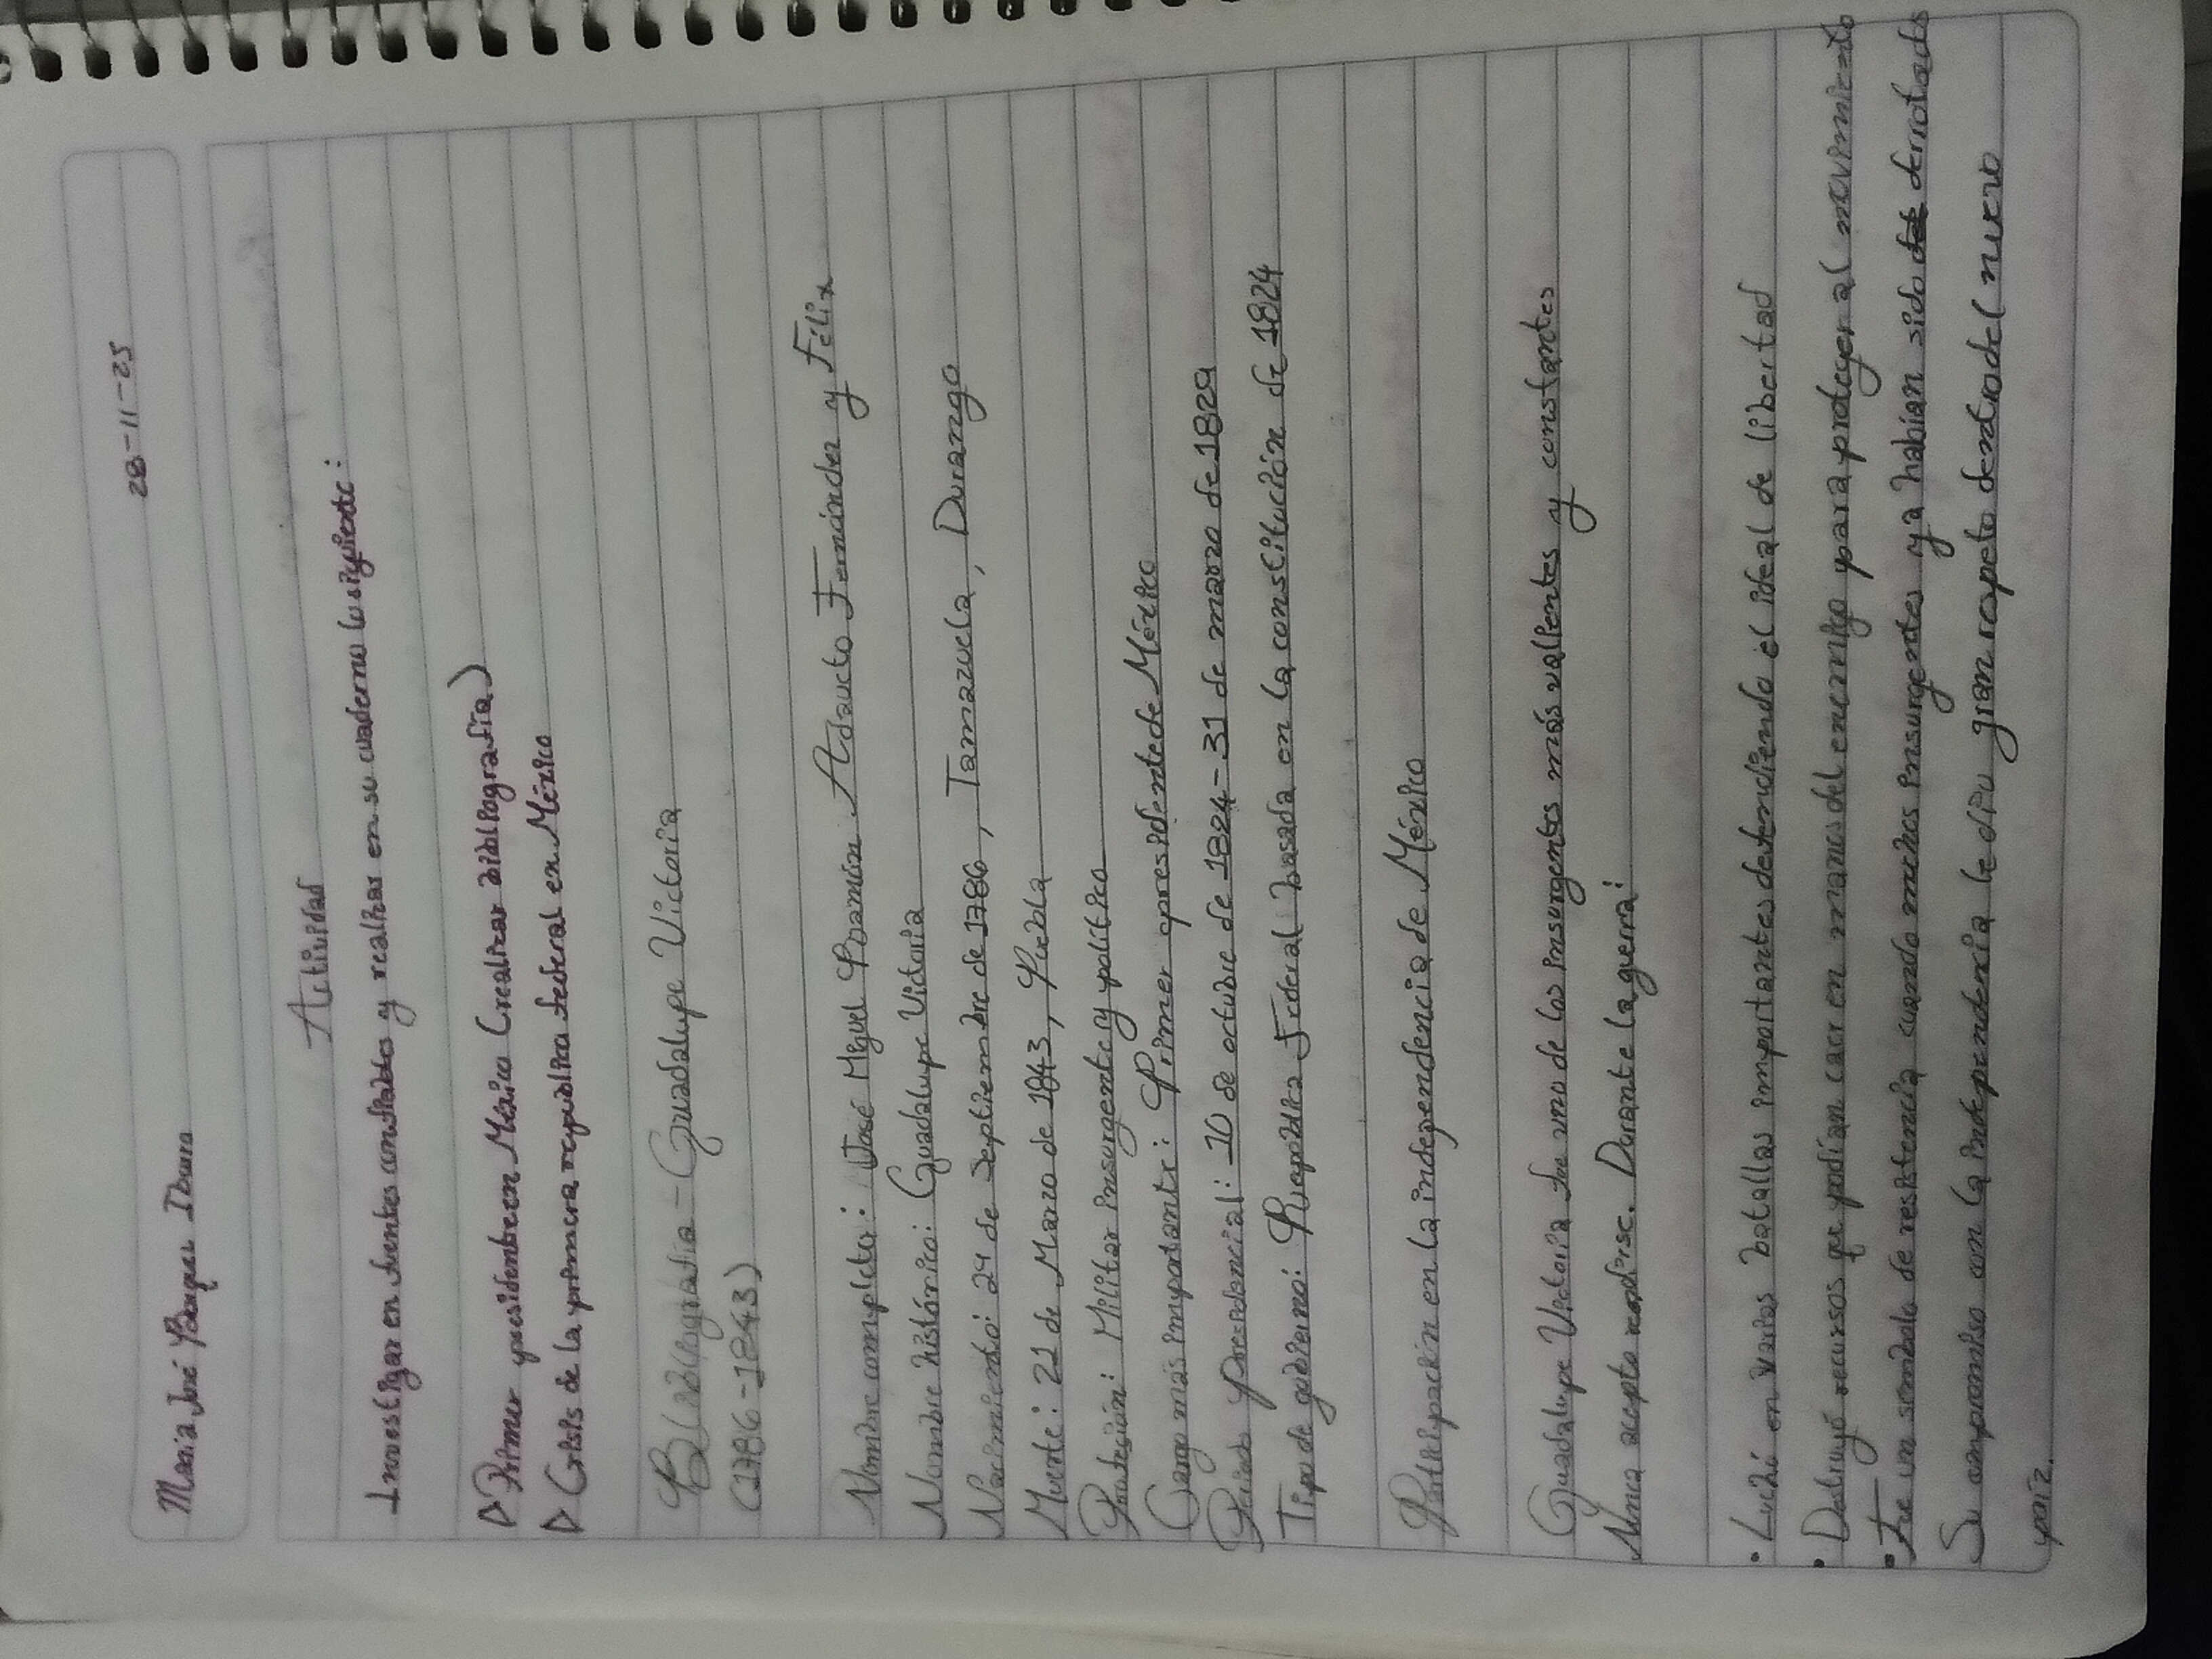 Maria José Bouques Ibarra
28-11-25
Actividad
Investigar en fuentes confiables y realizar en su cuaderno lo siguiente:
▷ Primer presidente en México (realizar bibliografía)
▷ Crisis de la primera republica federal en México
Bibliografía - Guadalupe Victoria
(1786-1843)
Nombre completo: José Miguel Ramón Adaucto Fernández y Félix
Nombre histórico: Guadalupe Victoria
Nacimiento: 29 de septiembre de 1786, Tamazuela, Durango
Muerte: 21 de Marzo de 1843, Puebla
Profesión: Militar insurgente y político
Cargo más importante: Primer presidente de México
Periodo presidencial: 10 de octubre de 1824-31 de marzo de 1829
Tipo de gobierno: República Federal basada en la constitución de 1824
Participación en la independencia de México
Guadalupe Victoria fue uno de los insurgentes más valientes y constantes
Nunca acepto rendirse. Durante la guerra:
• Luchó en varias batallas importantes defendiendo el ideal de libertad
• Destruyó recursos que podían caer en manos del enemigo para proteger al movimiento
• Fue un simbolo de resistencia cuando muchos insurgentes ya habían sido derrotados
Su compromiso con la independencia le dio gran respeto dentro del nuevo
país.